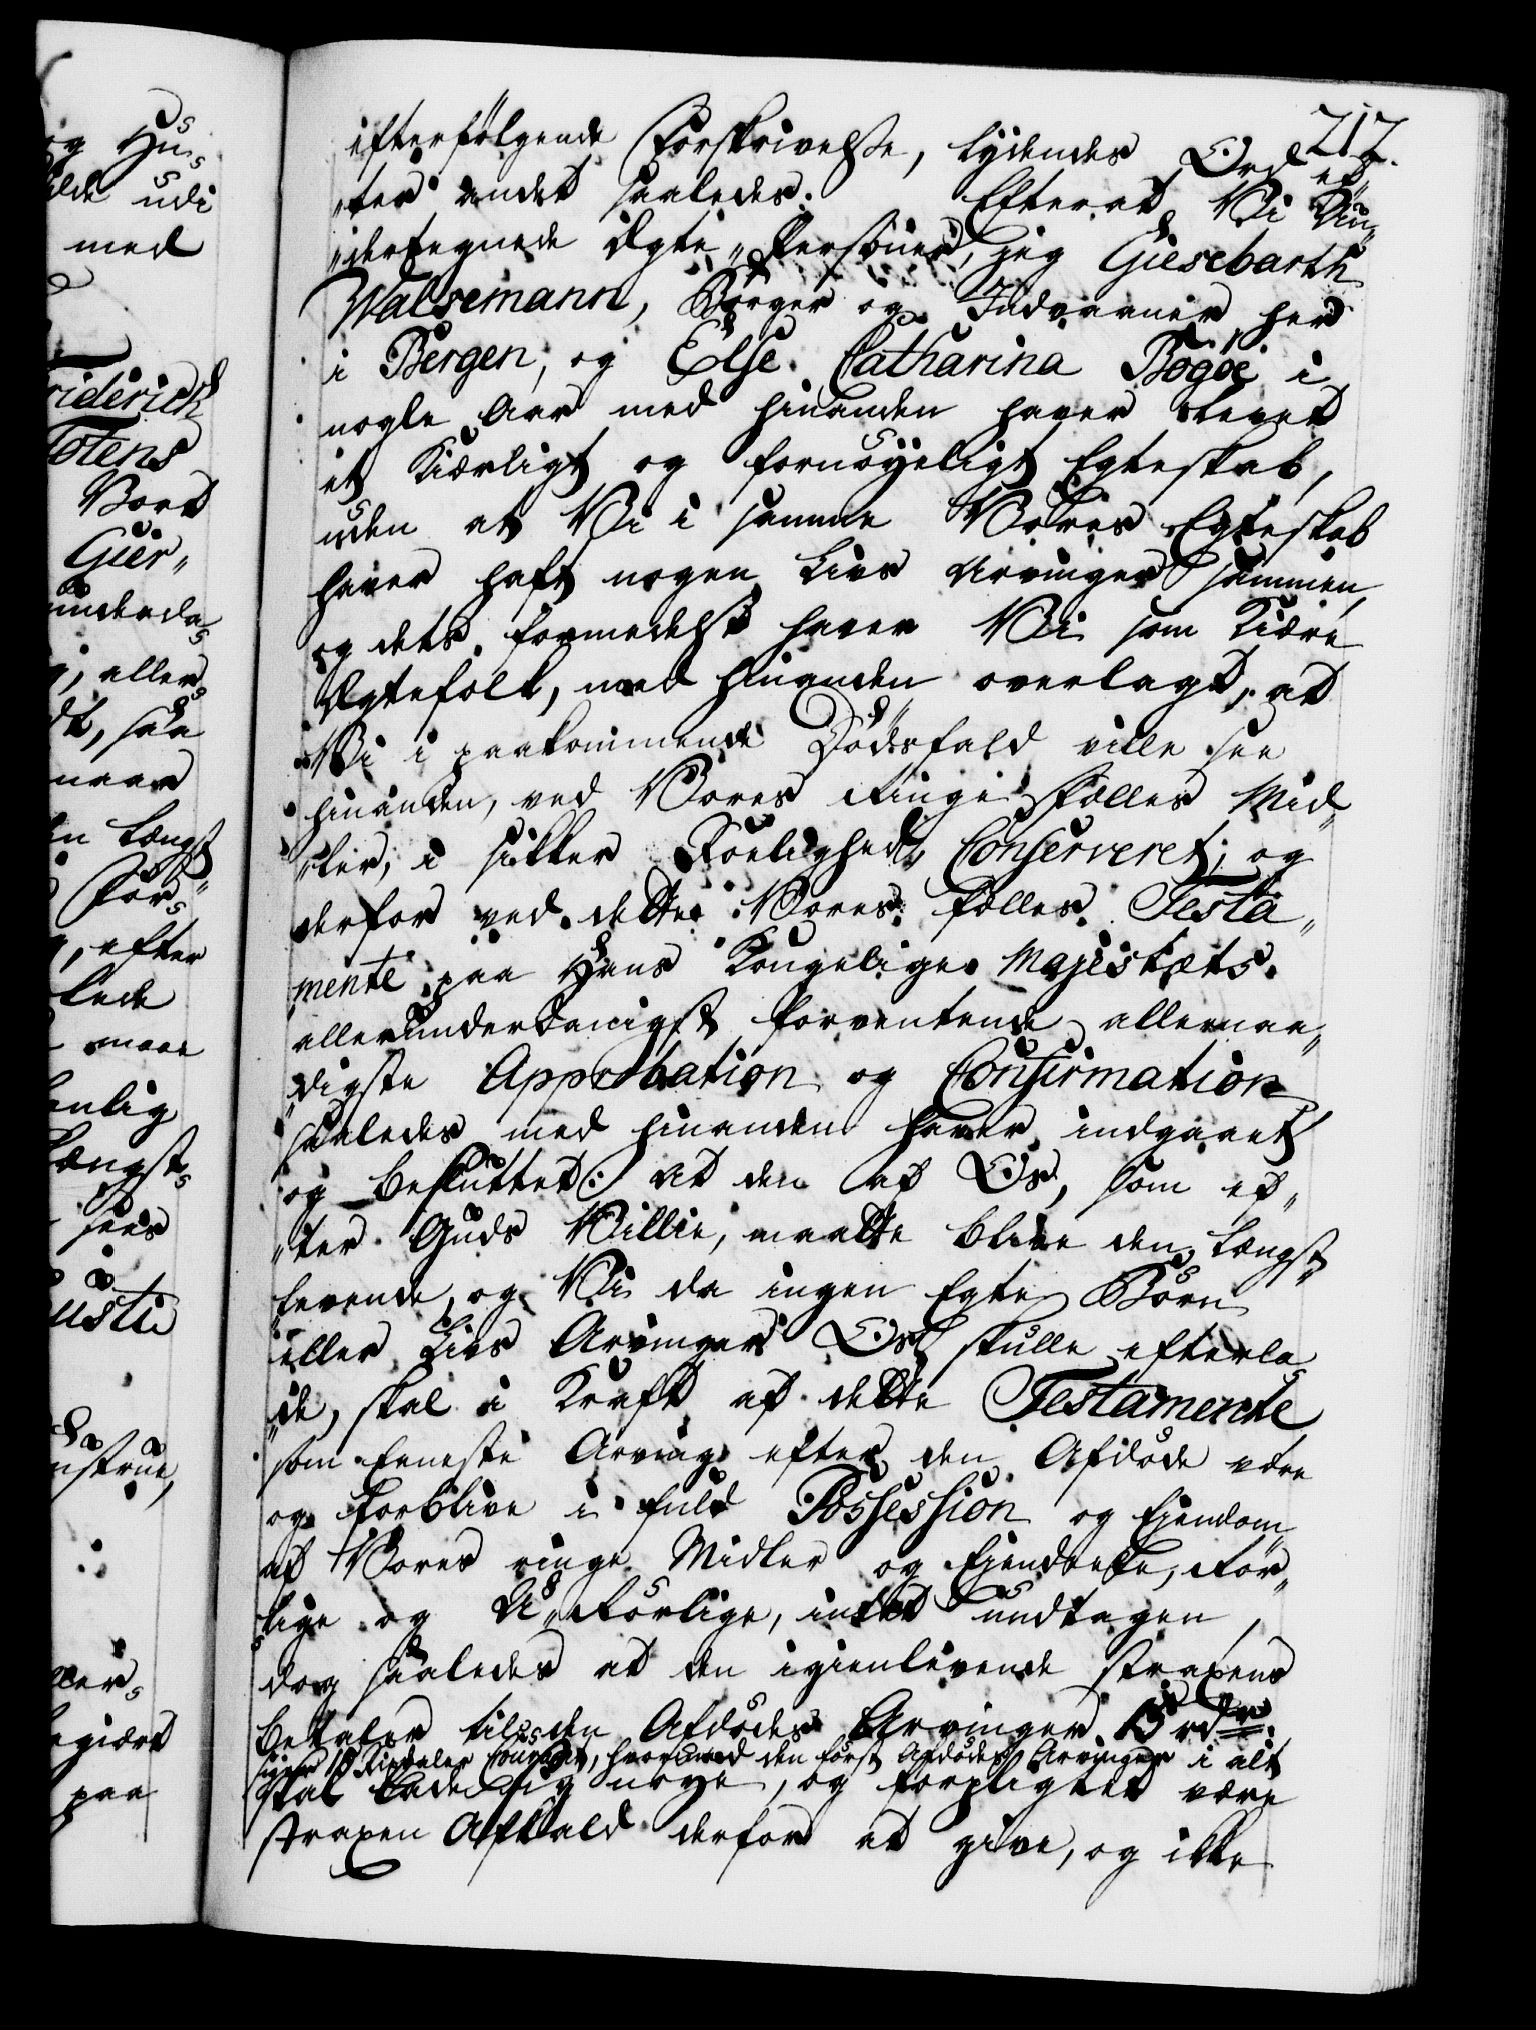 217.
efterfölgende Forskrivelse, lydendes Ord ef„
„ter andet saaledes. Efterat Vi Un„
„dertegnede Ægte„Persöner, jeg Giesebarth
Walsemann, Borger og Indvaaner her
i Bergen, og Else Catharina Bogöe i
nogle Aar med hinanden haver levet
et Kiærligt og fornöyeligt Egteskab,
uden at Vi i samme Vores Egteskab
haver haft nogen Livs Arvinger sammen,
og dets formedelst haver Vi som Kiære
Ægtefolk, med hinanden overlagt, at
Vi i paakommende Dödsfald ville see
hinanden, ved Vores ringe fælles Mid„
„ler, i sikker Roelighed, Conserveret; og
derfor ved dette Vores fælles Testa„
„mente paa Hans Kongelige Majestæts
allerunderdanigst forventende allernaa„
„digste Approbation og Confirmation
saaledes med hinanden haver indgaaet
og besluttet: At den af Os, som ef„
„ter Guds Villie, maatte blive den Længst„
„levende, og Vi da ingen Egte Börn
eller Livs Arvinger Os skulle efterla„
„de, skal i Kraft af dette Testamente
som Eeneste Arving efter den Afdöde være
og forblive i fuld Possession og Eiendom
af Vores ringe Midler og Eiendeele, rör„
„lige og U„rörlige, intet undtagen,
dog saaledes at den igienlevende strapens
betaler til den Afdödes Arvinger 13 rdr.
siger 13 Rixdaler Courant, hvormed den först Afdödes Arvinger i alt
skal lade sig nöye, og forpligtet være
strapen Afkald derfor at give, og ikke